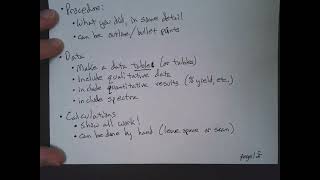 • Procedure:
• What you did, in some detail
• can be outline/bullet points
• Data
• Make a data table (or tables)
• Include qualitative data
• include quantitative results (% yield, etc.)
• include spectra
• Calculations
• show all work!
• can be done by hand (leave space or scan)
page 2